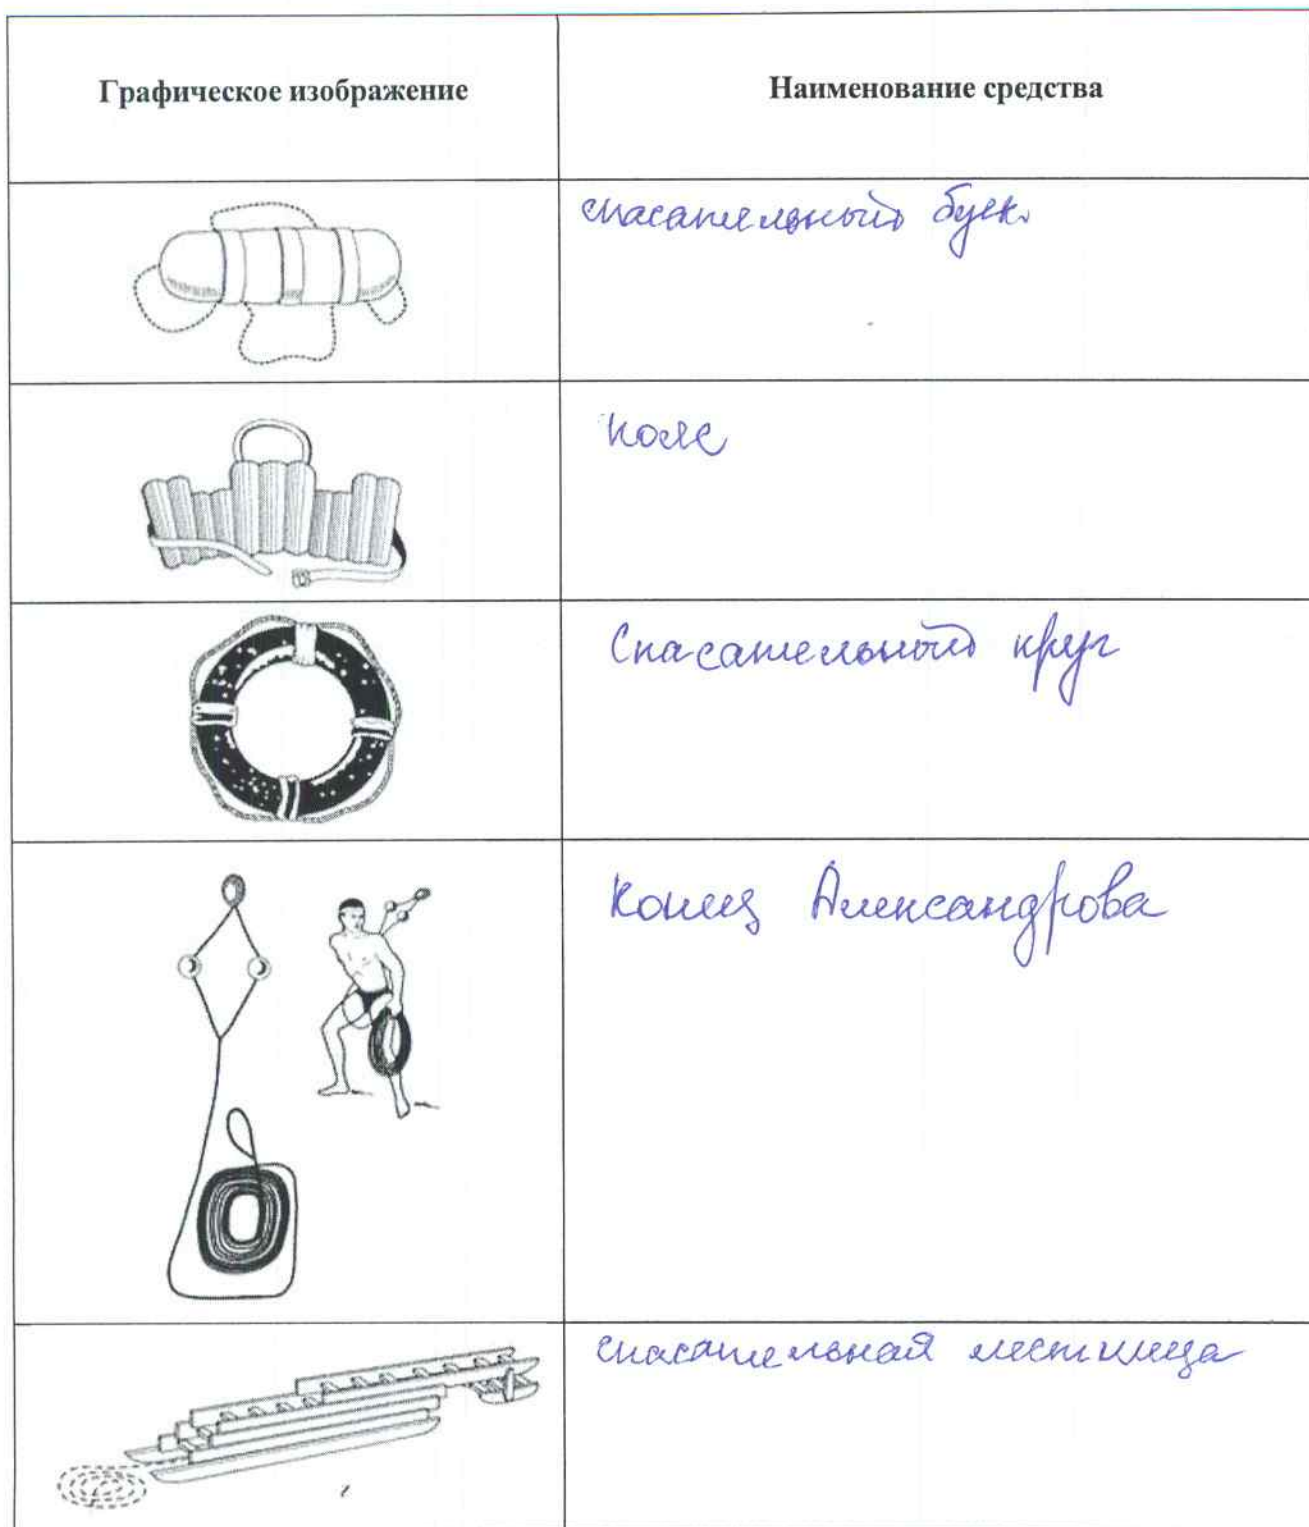 Графическое изображение
Наименование средства
спасательный буек
пояс
Спасательный круг
конец Александрова
спасательная лестница